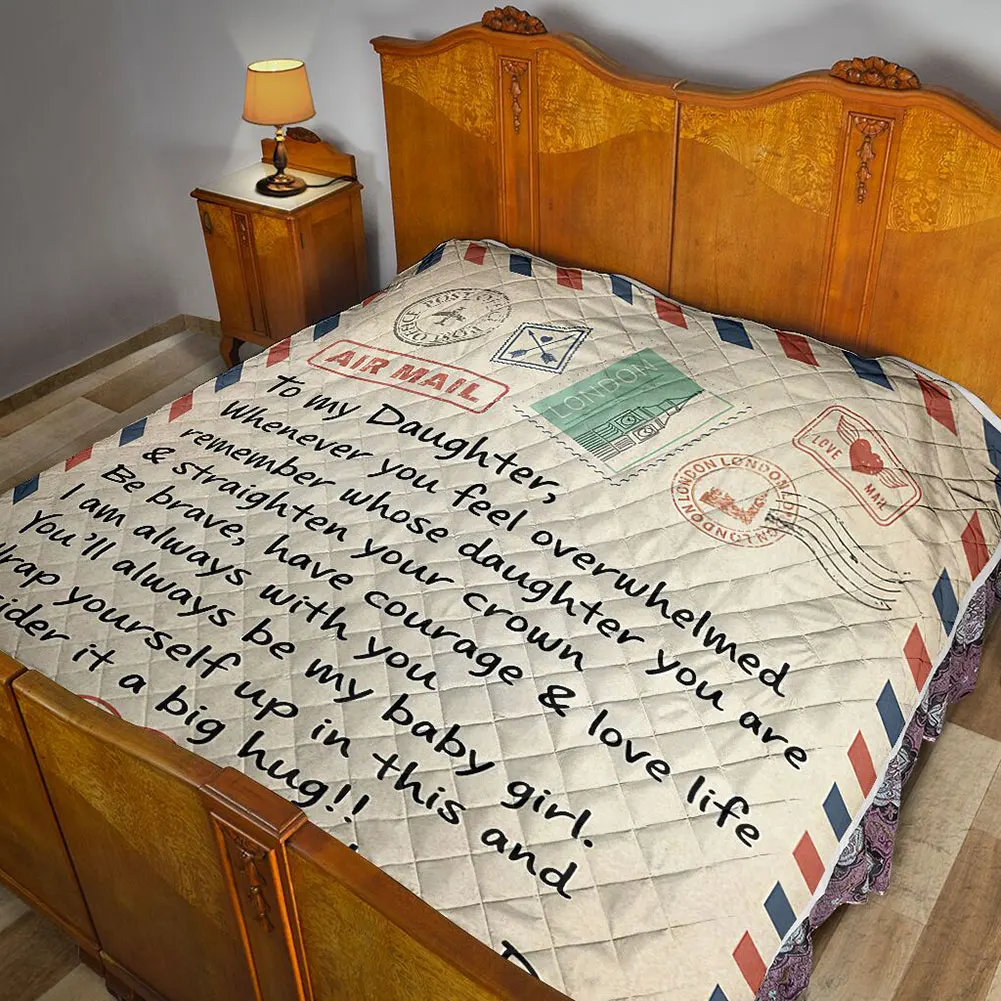 POST OFFICE POST OFFICE
AIR MAIL
LONDOM
LOVE
MAIL
LONDON LONDON LONDON LONDON
To my Daughter,
Whenever you feel overwhelmed
remember whose daughter you are
& straighten your crown
Be brave, have courage & love life
I am always with you
You'll always be my baby girl.
Wrap yourself up in this and
sider it a big hug!!